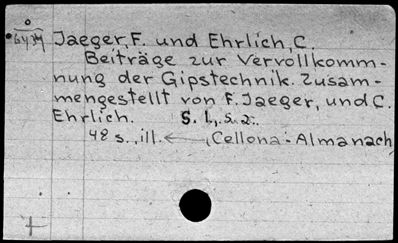 Jaeger, F. und Ehrlich, C.
Beiträge zur Vervollkomm-
nung der Gipstechnik. Zusam-
mengestellt von F. Jaeger, und C.
Ehrlich. S. l., s. a.
48 s., ill. (Cellona-Almanach)